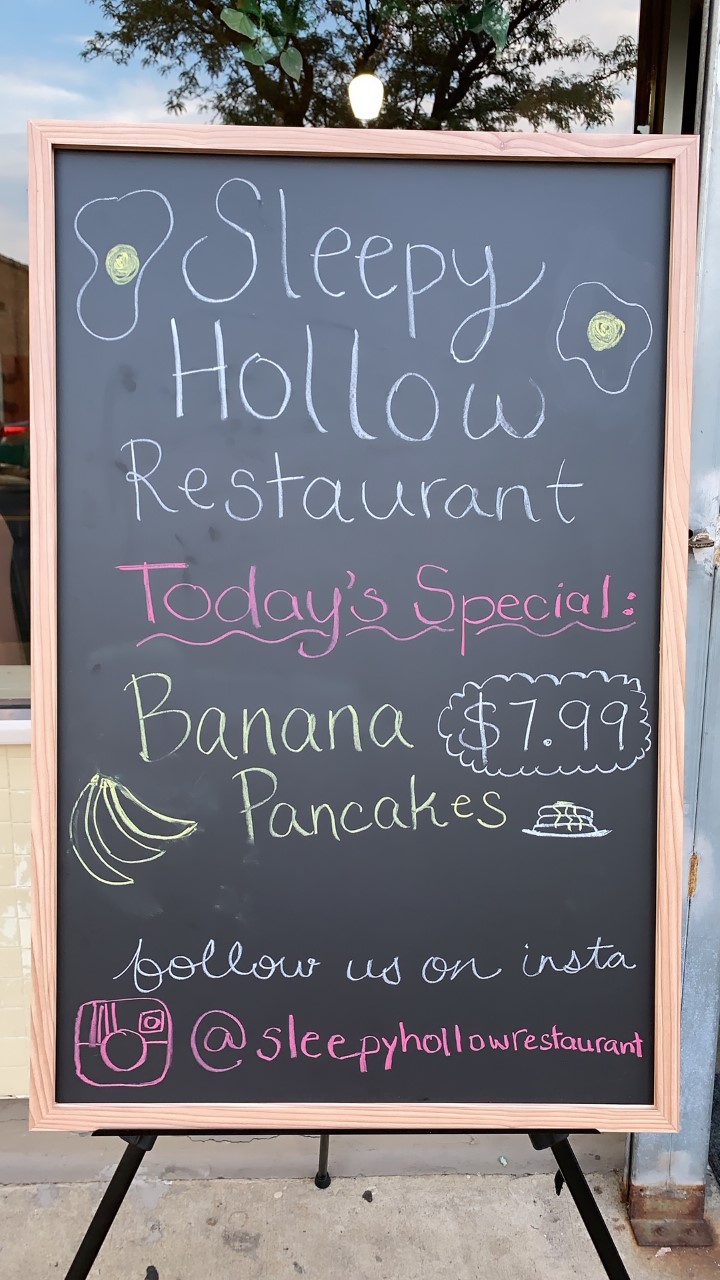 Sleepy
Hollow
Restaurant
Today's Special:
Banana $7.99
Pancakes
follow us on insta
@sleepyhollowrestaurant